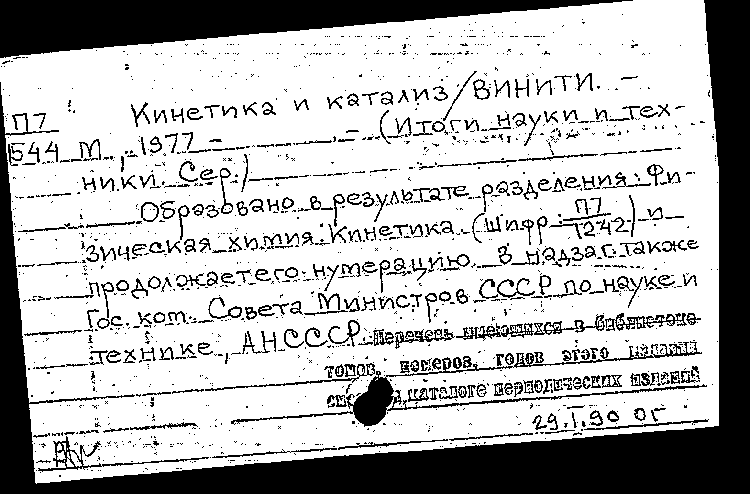 Кинетика и катализ / ВИНИТИ. -
П7
544 М., 1977 - . - (Итоги науки и тех-
ники. Сер.)
Образовано в результате разделения: Фи-
зическая химия. Кинетика. (Шифр: П7/1242) и
продолжает его нумерацию. В надзаг. также
Гос. ком. Совета Министров СССР по науке и
технике, АН СССР. Перечень имеющихся в библиотеке
томов, номеров, годов этого издания
каталоге периодических изданий
29.I.90 ог